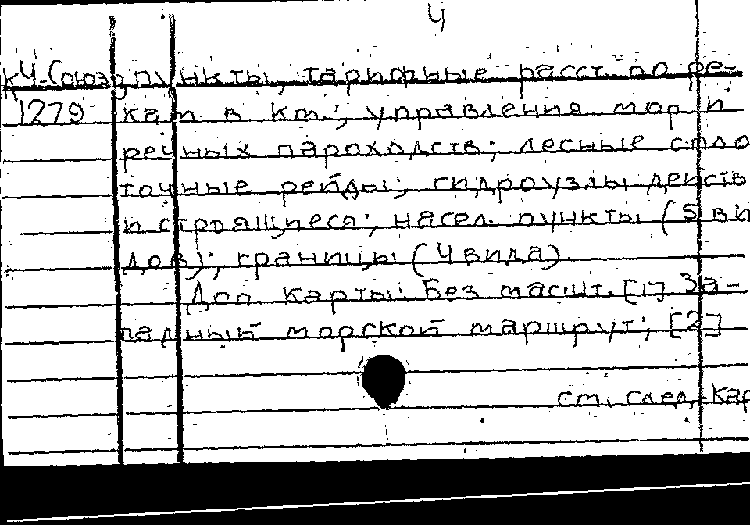 4
К4-Союз пункты, тарифные расст. по ре-
1279 кам в км.; управления мор. и
речных пароходств; лесные спло
точные рейды; гидроузлы действ
и строящиеся; насел. пункты (5 ви
дов); границы (4 вида).
Доп. карты: Без масшт. [1] За-
падный морской маршрут; [2]
см. след. кар